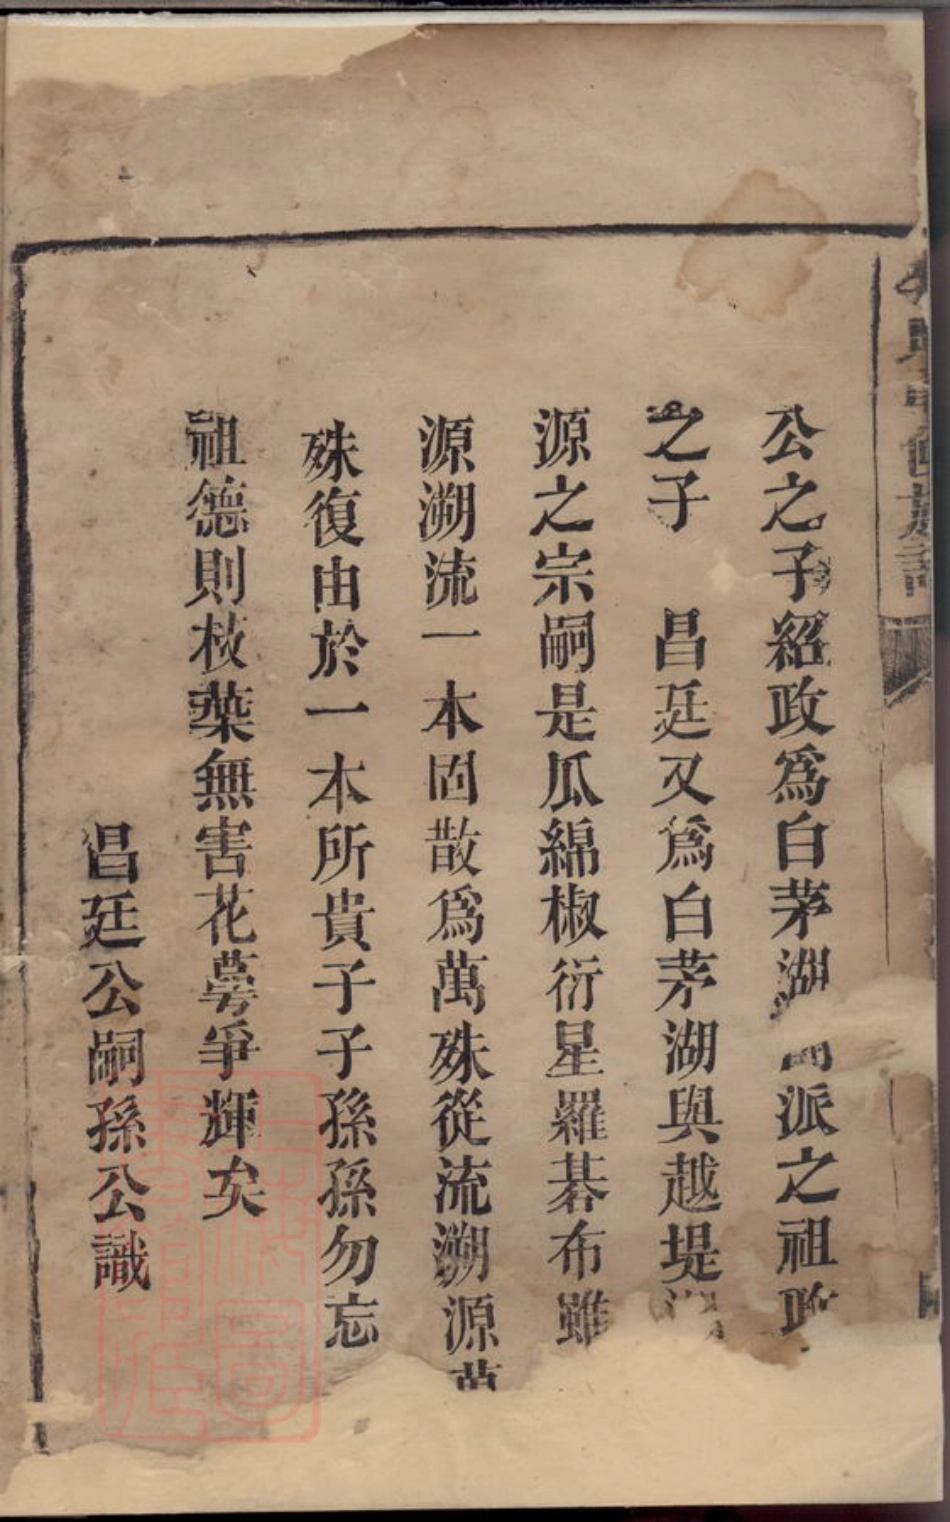 公之子紹政爲白茅湖 派之祖政
之子 昌廷又爲白茅湖與越堤
源之宗嗣是瓜綿椒衍星羅碁布雖
源溯流一本固散爲萬殊從流溯源萬
殊復由於一本所貴子子孫孫勿忘
祖德則枝葉無害花萼爭輝矣
昌廷公嗣孫公識